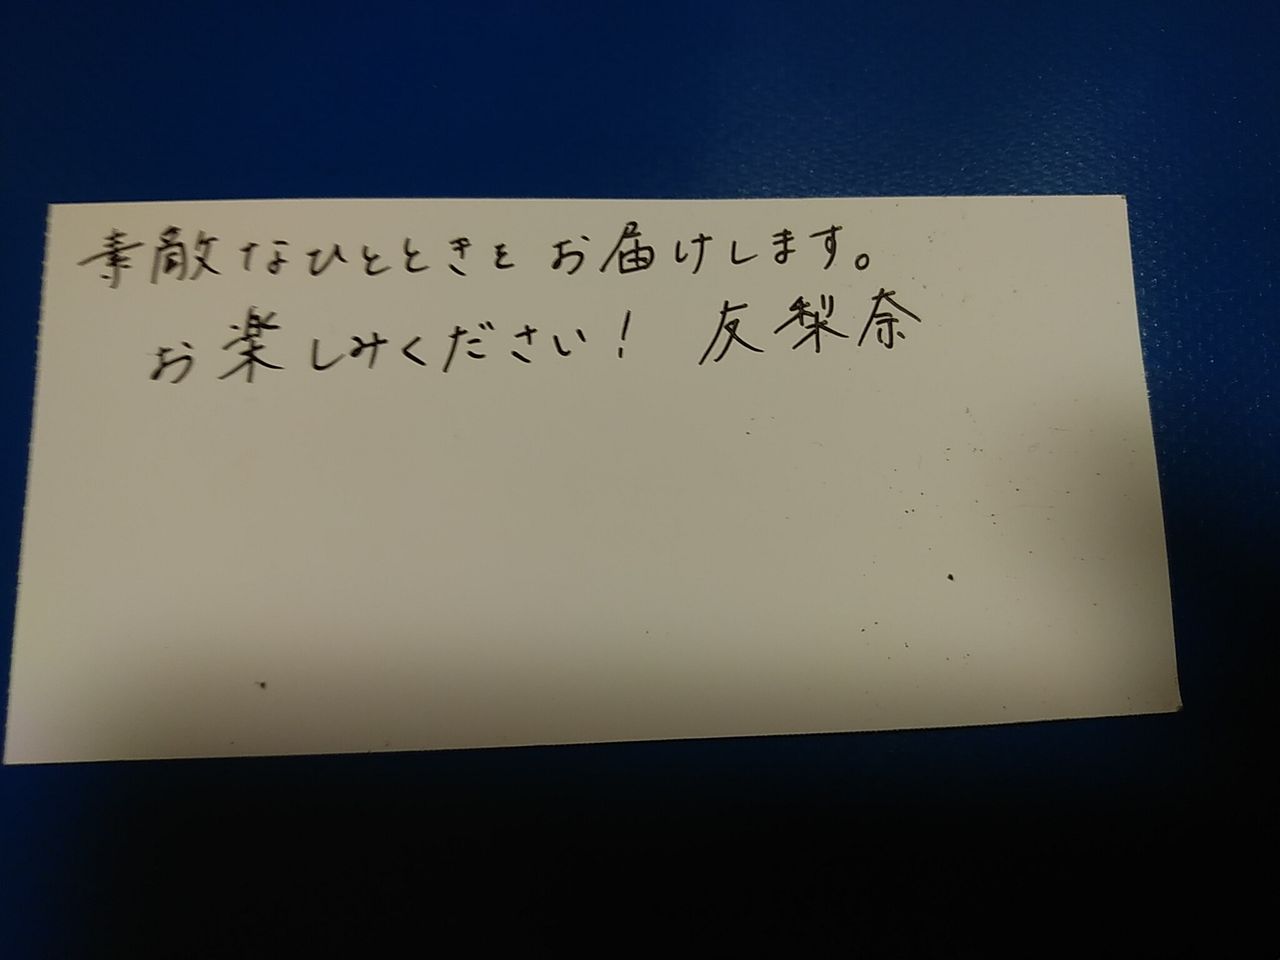 素敵なひとときをお届けします。
お楽しみください! 友梨奈